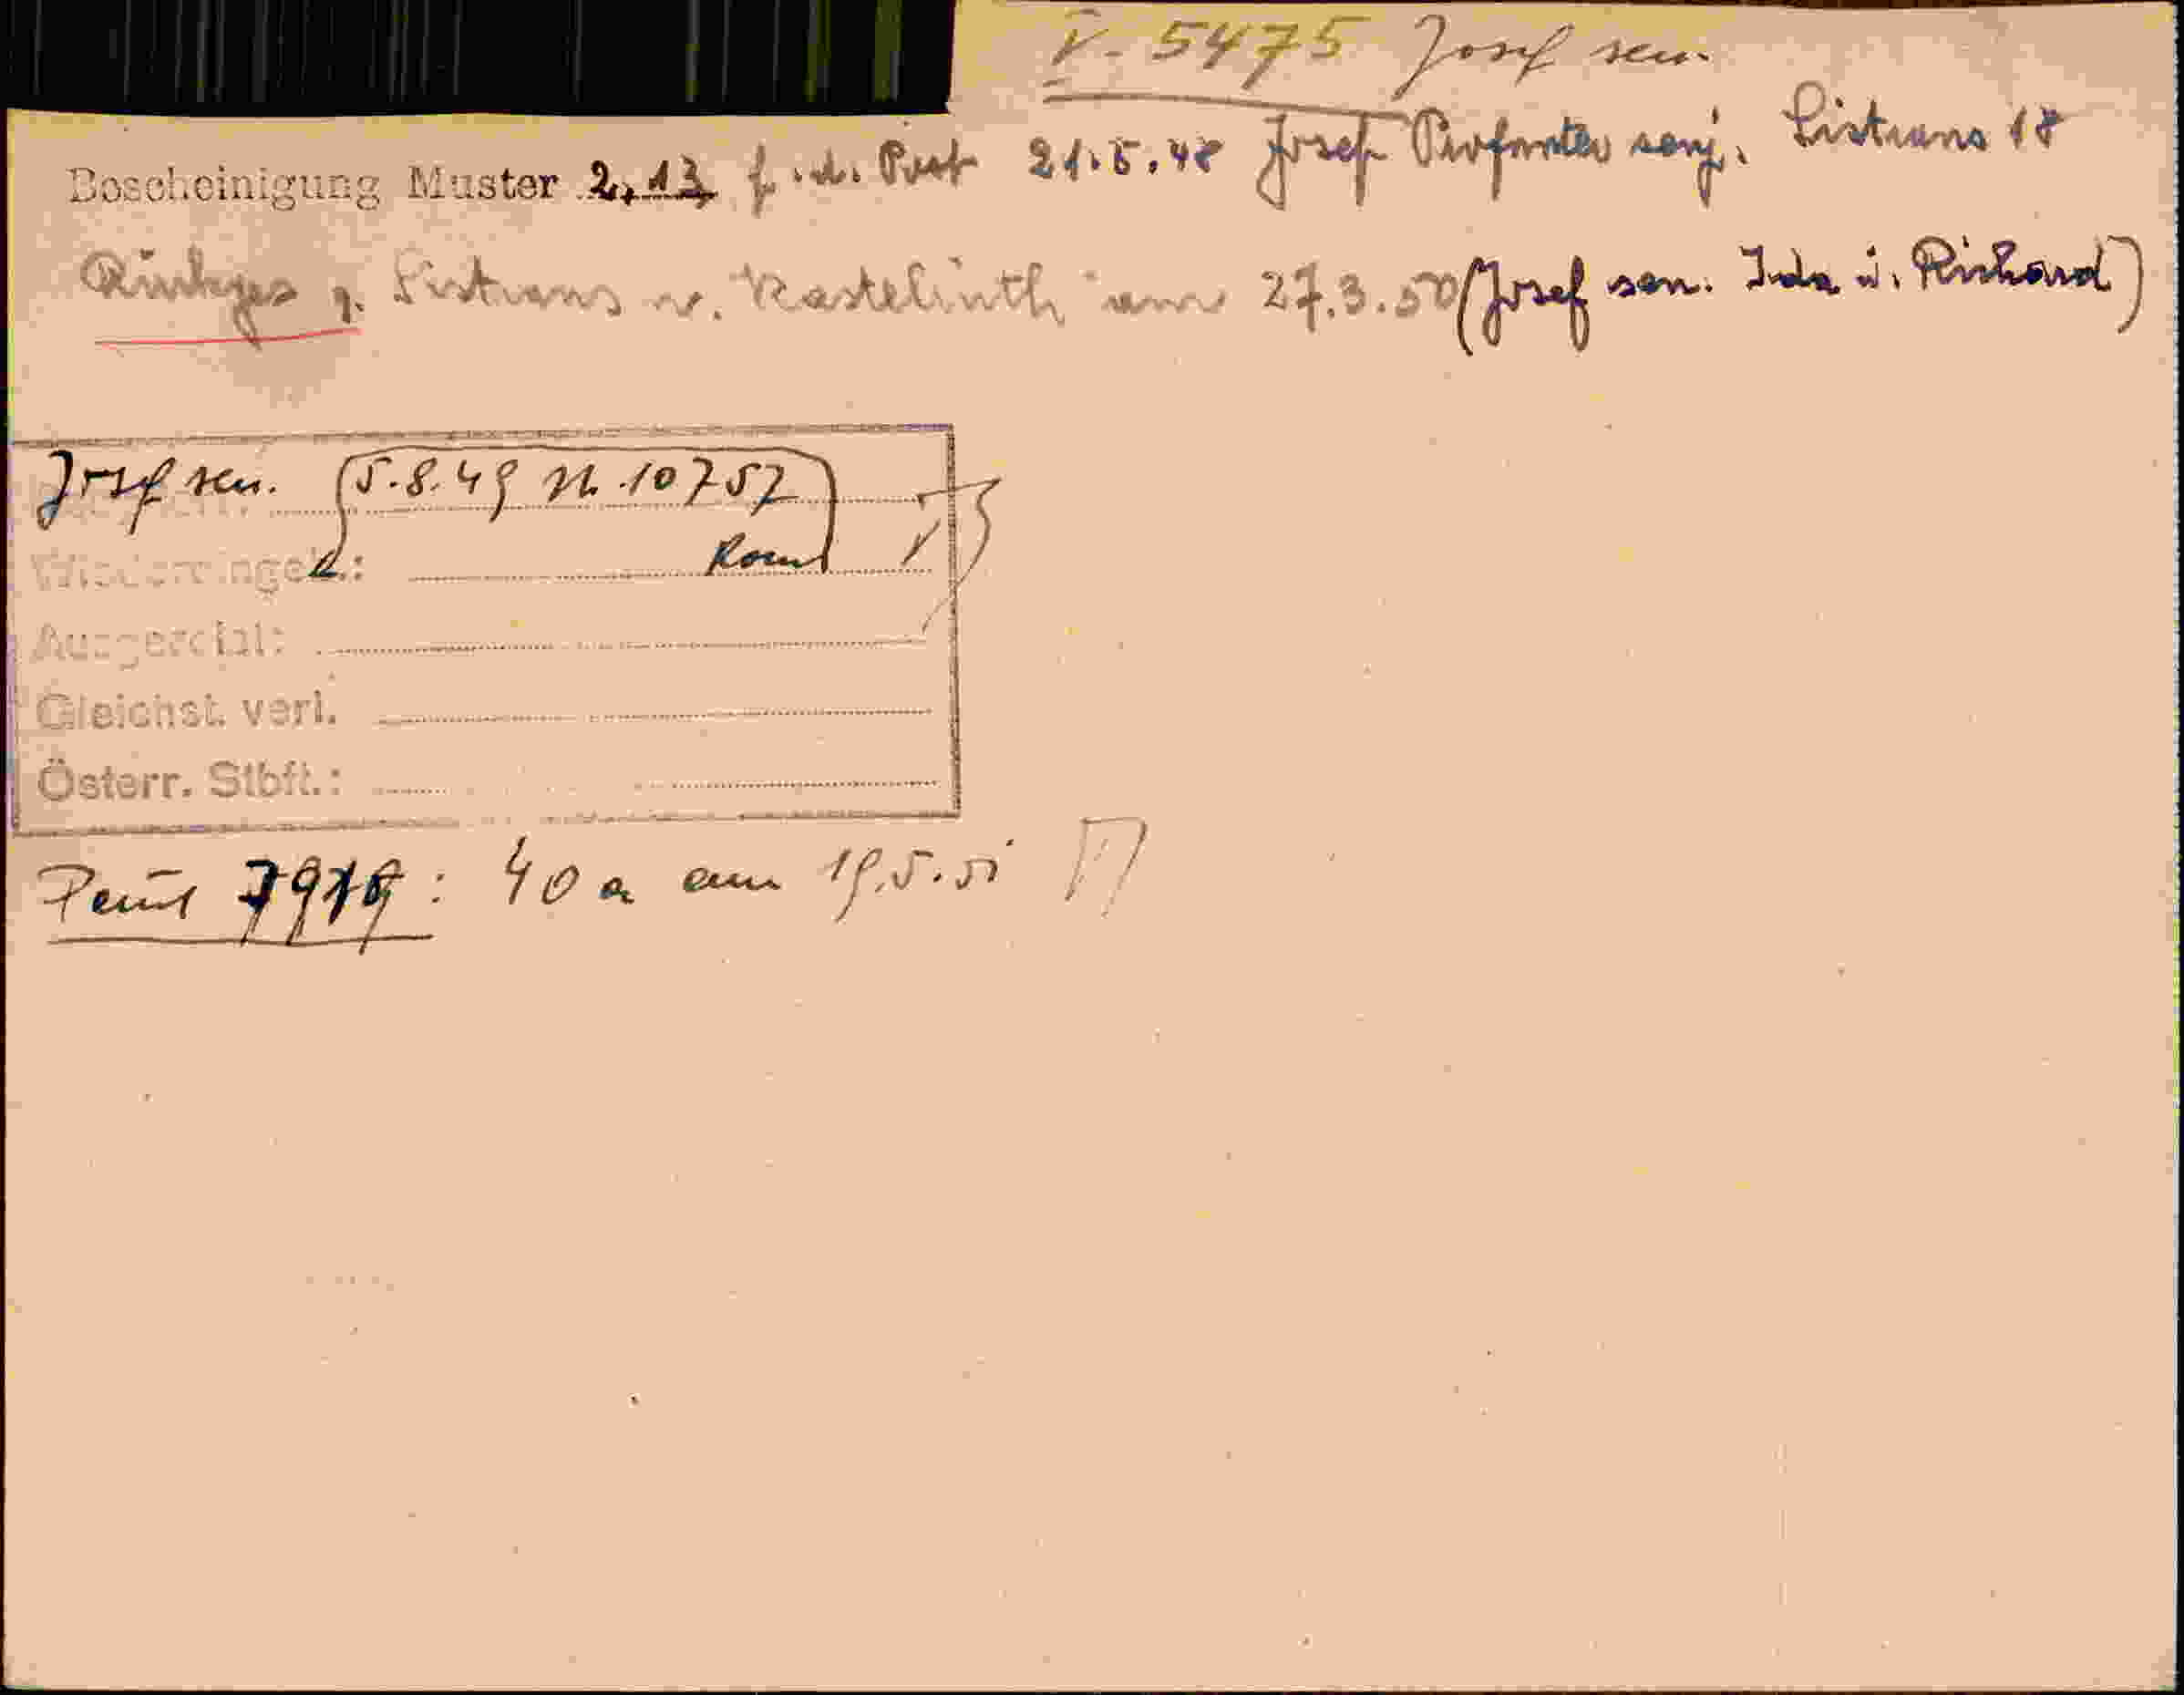 V. 5475 Josef sen.
Bescheinigung Muster 2, 13 f. d. Post 21.5.48 Josef Profanter senj. Listrans 18
Rücksges g. Listrans n. Kastelruth am 27.3.50 (Josef sen. Ida ü. Richard)
Josef sen. 5.8.49 N. 10757
Wiedereingeb.: Rom
Ausgereist:
Gleichst. verl.
Österr. Stbft.:
40 a am 19.5.51